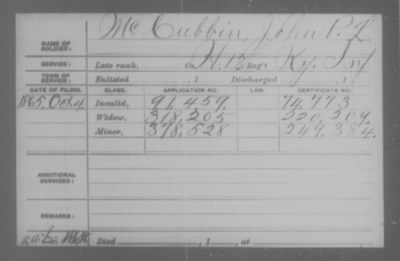 NAME OF SOLDIER: McCubbin, John P. L
SERVICE: Late rank, Co. H. 13 Reg't Ky. Inf
TERM OF SERVICE: Enlisted , 1 Discharged , 1
DATE OF FILING. CLASS. APPLICATION NO. LAW. CERTIFICATE NO.
1865 Oct 4 Invalid, 91,459 74,773
Widow, 318,205 220,209
Minor, 378,528 249,384
ADDITIONAL SERVICES:
REMARKS:
Died , 1 , at